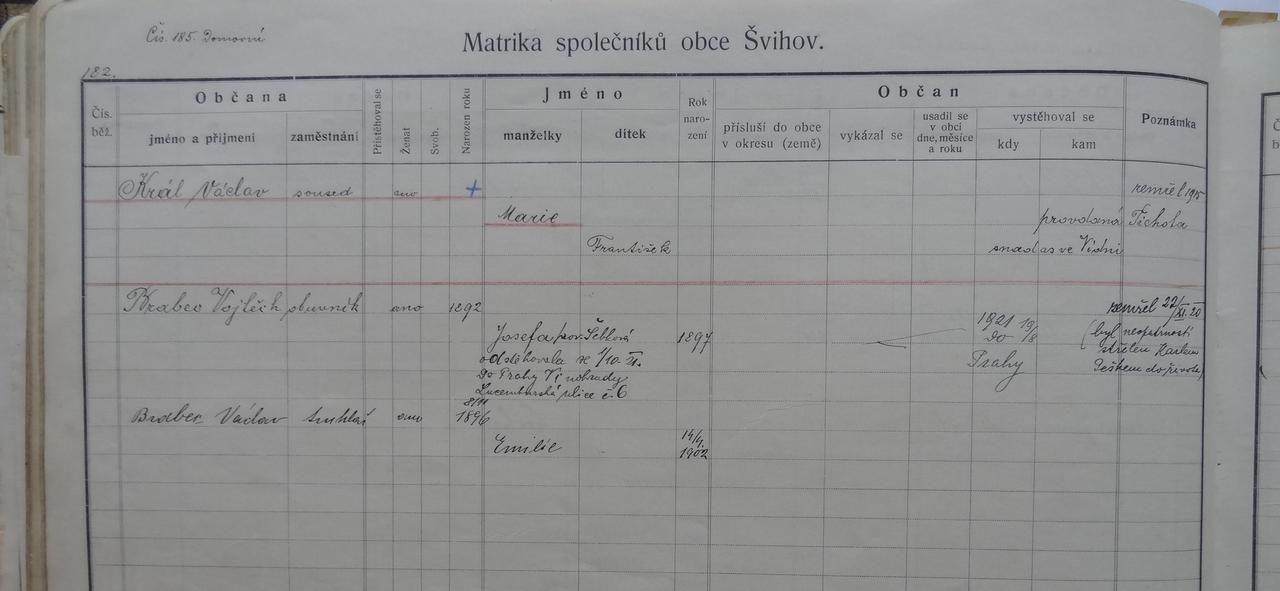 Čís. 185. Domovní
Matrika společníků obce Švihov.
182.
Čís. běž.
Občana
jméno a příjmení
zaměstnání
Přistěhoval se
Ženat
Svob.
Narozen roku
Jméno
manželky
dítek
Rok naro- zení
Občan
přísluší do obce v okresu (země)
vykázal se
usadil se v obci dne, měsíce a roku
vystěhoval se
kdy
kam
Poznámka
Král Václav soused ano + zemřel 1915
Marie provdaná Tichota
František snad as ve Vídni
Brabec Vojtěch obuvník ano 1892 zemřel 22/XI. 20
Josefa 1897 1921 19/8 (byl neopatrností
odstěhovala se 1/10. do střelen Karlem
Do Prahy Vinohrady Prahy Peškem do života)
Lucemburská ulice č. 6
8/11
Brabec Václav truhlář ano 1896
Emilie 14/4. 1902